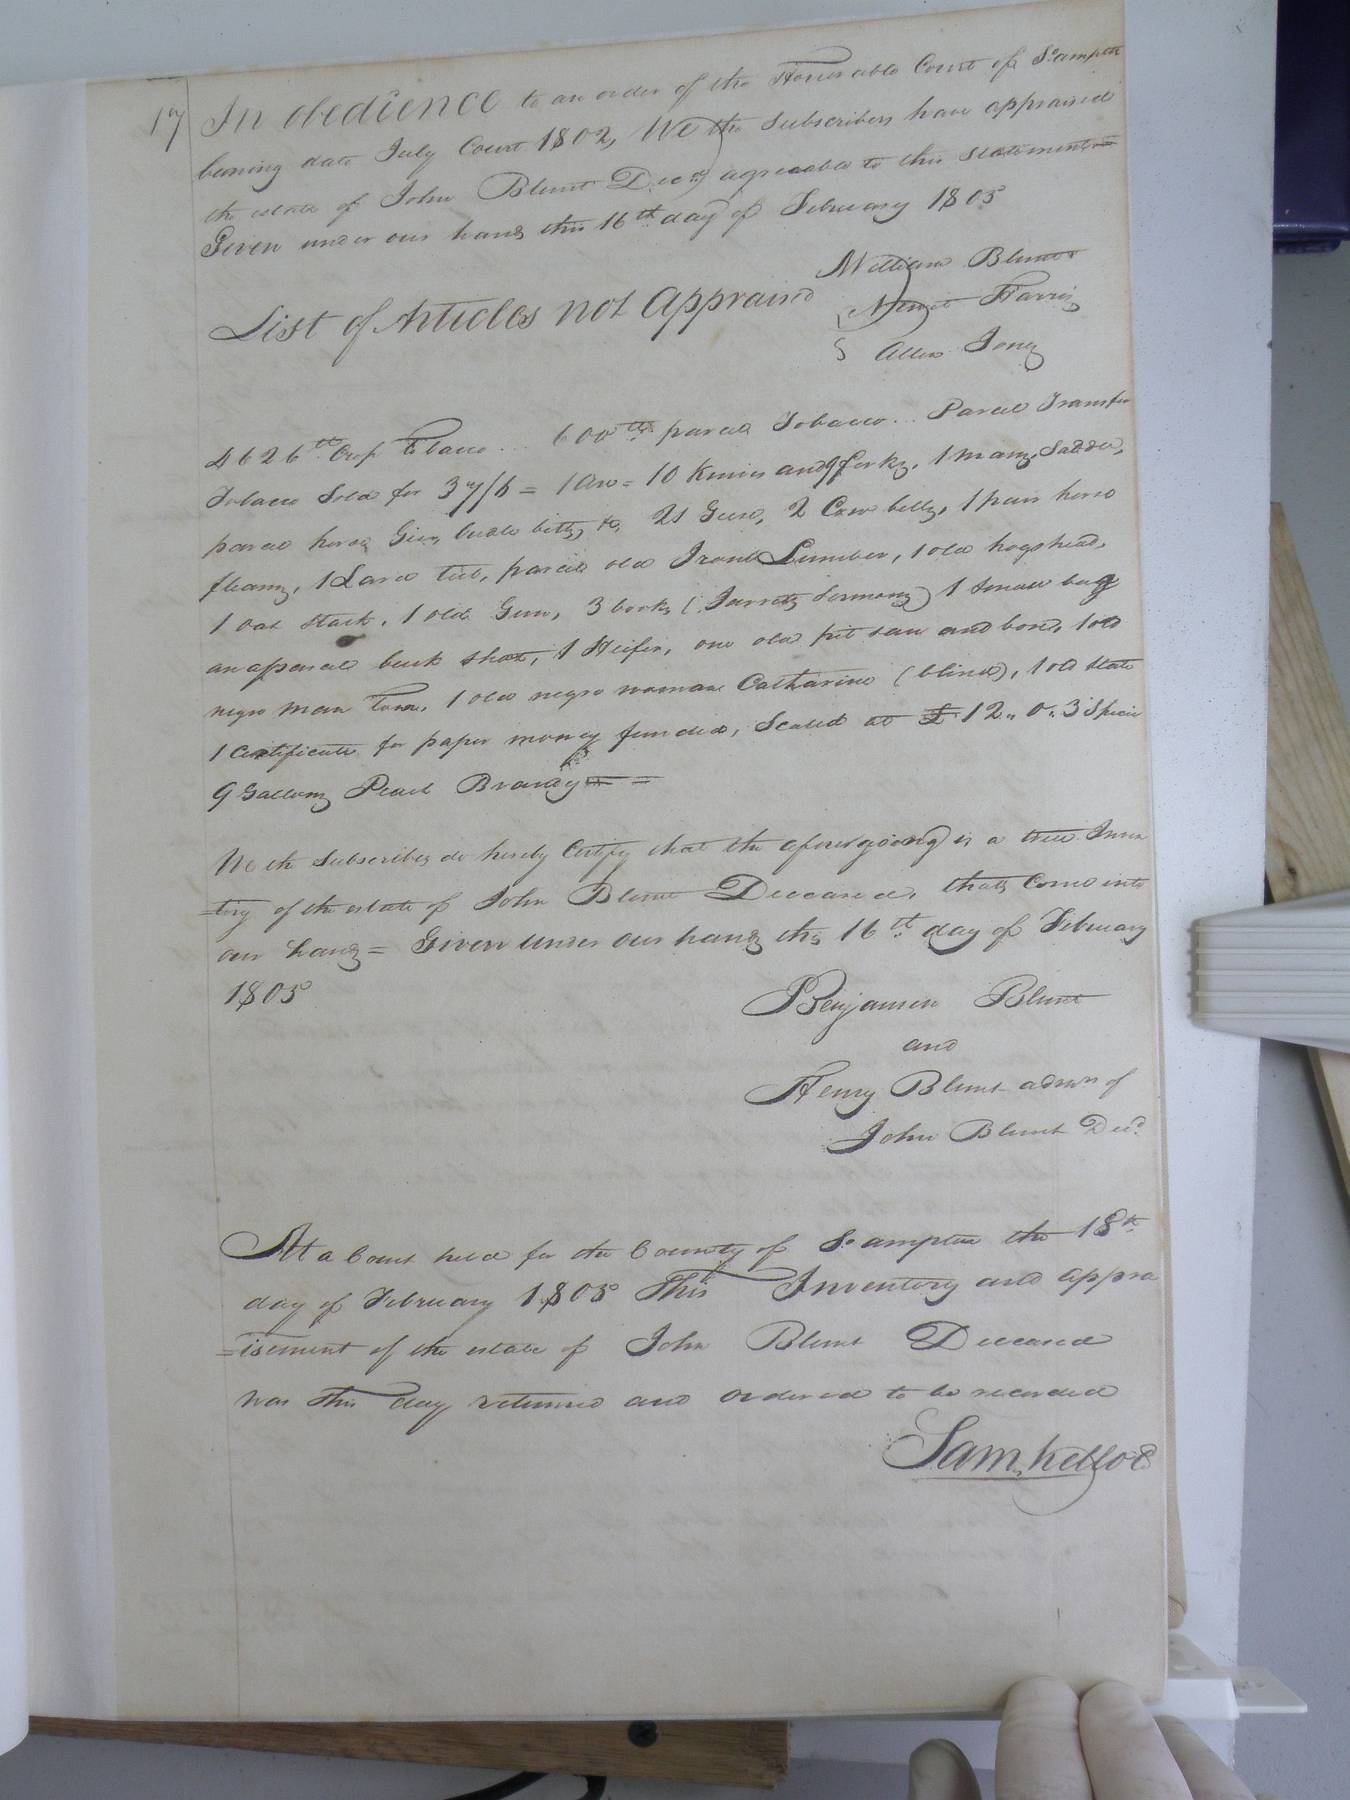 17
In obedience to an order of the Honorable Court of So.ampton
bearing date July Court 1802, We the subscribers have appraised
the estate of John Blunt Decd. agreeable to this statement=
Given under our hands this 16th day of February 1805
William Blunt
Harris
List of Articles not Appraised
Allen Jones
4626 Crop Tobacco ... 600 parcel Tobacco ... Parcel Transfer
Tobacco Sold for 37/6 = 1 Aw = 10 Knives and 9 forks, 1 mans Saddle,
parcel horse Gier, bridle bitts, &c, 21 Geese, 2 Cow bells, 1 pair horse
fleams, 1 Large tub, parcel old Iron & Lumber, 1 old hogshead,
1 oat stack, 1 old Gun, 3 books (Jarretts Sermons) 1 Small bag
an parcel buck shot, 1 Heifer, one old pit saw and box, 1 old
negro man Tom, 1 old negro woman Catharine (blind), 1 old State
1 Certificate for paper money funded, Scaled at £ 12.. 0.. 3 Specie
9 Gallons Peach Brandy = =
We the Subscribers do hereby Certify that the aforegoing is a true Inven
=tory of the estate of John Blunt Deceased, thats Come into
our hands = Given under our hands this 16th day of February
1805
Benjamin Blunt
and
Henry Blunt admrs of
John Blunt Decd.
At a Court held for the County of So.ampton the 18th
day of February 1805 This Inventory and appra
=isement of the estate of John Blunt Deceased
was this day returned and ordered to be recorded
Sam. Kelloe